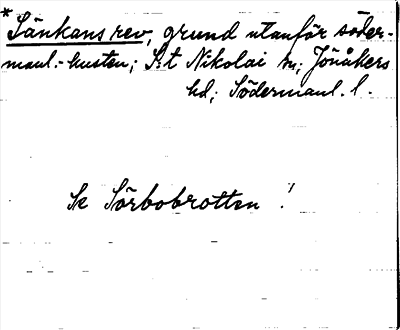 * Sänkans rev, grund utanför söder-
manl.-kusten; S:t Nikolai sn; Jönåkers
hd; Södermanl. l.
Se Sörbobrotten !